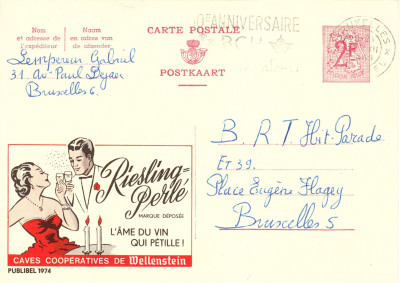 Nom
et adresse de
l'expéditeur
Naam
en adres van
de afzender
CARTE POSTALE
POSTKAART
ANNIVERSAIRE
2F
Lempereur Gabriel
31 Av. Paul Dejaer
Bruxelles 6.
B R T Hit-Parade
Et 39.
Place Eugène Flagey
Bruxelles 5
Riesling=
Perlé
MARQUE DÉPOSÉE
L'ÂME DU VIN
QUI PÉTILLE !
CAVES COOPÉRATIVES DE Wellenstein
PUBLIBEL 1974